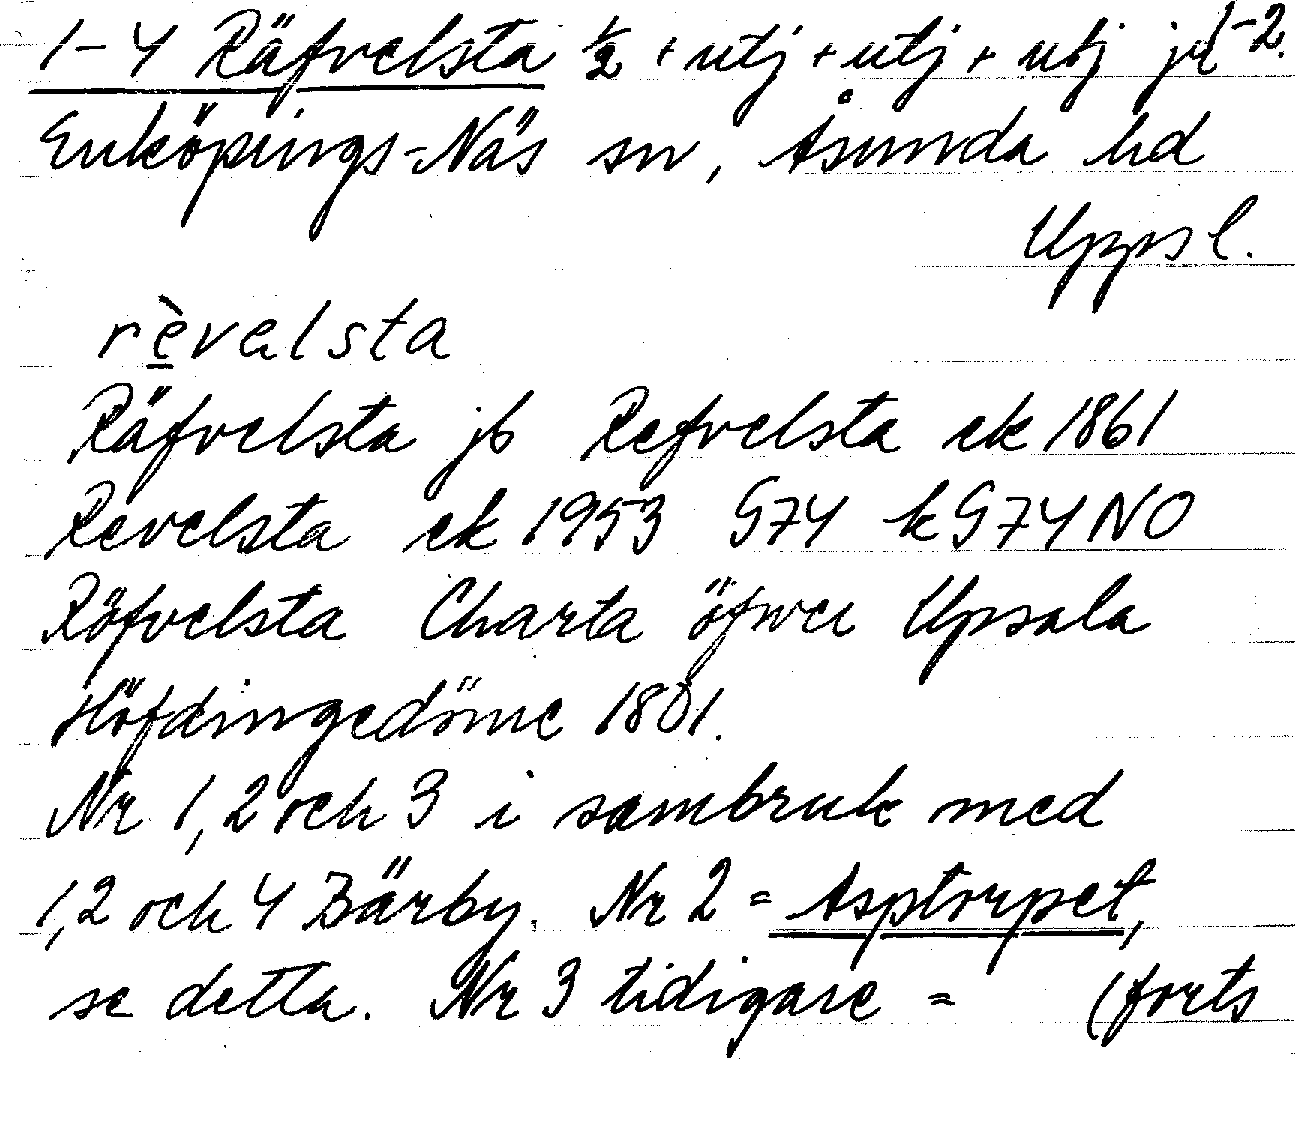 1-4 Räfvelsta ½ + utj + utj + utj jd 1-2.
Enköpings-Näs sn, Åsunda hd
Uppsl.
rèvelsta
Räfvelsta jb Refvelsta ek 1861
Revelsta ek 1953 G74 k G74NO
Röfvelsta Charta öfwer Upsala
Höfdingedöme 1801.
Nr 1,2 och 3 i sambruk med
1,2 och 4 Bärby. Nr 2 = Asptorpet,
se detta. Nr 3 tidigare = (forts